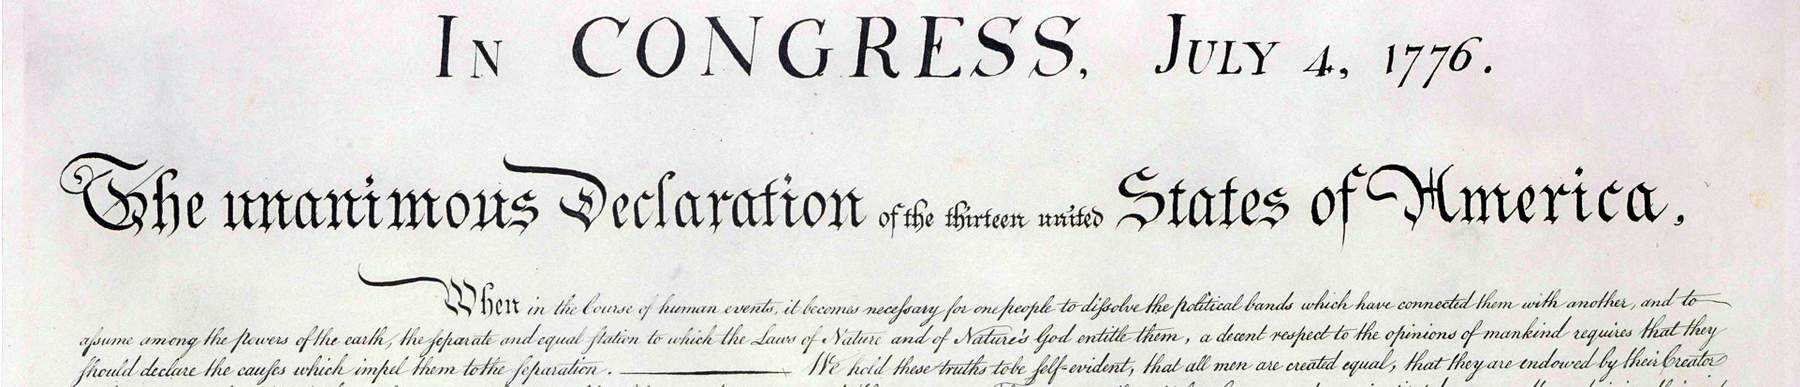 In CONGRESS, July 4, 1776.
The unanimous Declaration of the thirteen united States of America,
When in the Course of human events, it becomes neceſsary for one people to diſsolve the political bands which have connected them with another, and to
aſsume among the powers of the earth, the ſeparate and equal ſtation to which the Laws of Nature and of Nature's God entitle them, a decent respect to the opinions of mankind requires that they
ſhould declare the cauſes which impel them to the ſeparation. ——— We hold these truths to be ſelf-evident, that all men are created equal, that they are endowed by their Creator